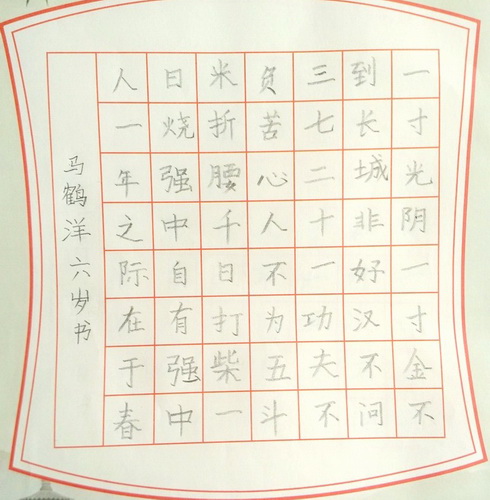 一寸光阴一寸金不
到长城非好汉不问
三七二十一功夫不
负苦心人不为五斗
米折腰千日打柴一
日烧强中自有强中
人一年之际在于春
马鹤洋六岁书